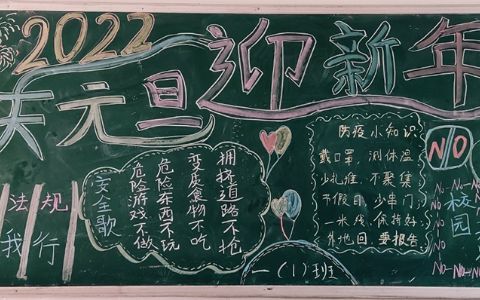 2022
庆元旦迎新年
法规
我行
安全歌
危险游戏不做
危险东西不玩
变质食物不吃
拥挤道路不抢
防疫小知识
戴口罩,测体温
少扎堆,不聚集
节假日,少串门
一米线,保持好
外地回,要报告
一(1)班
NO
校园